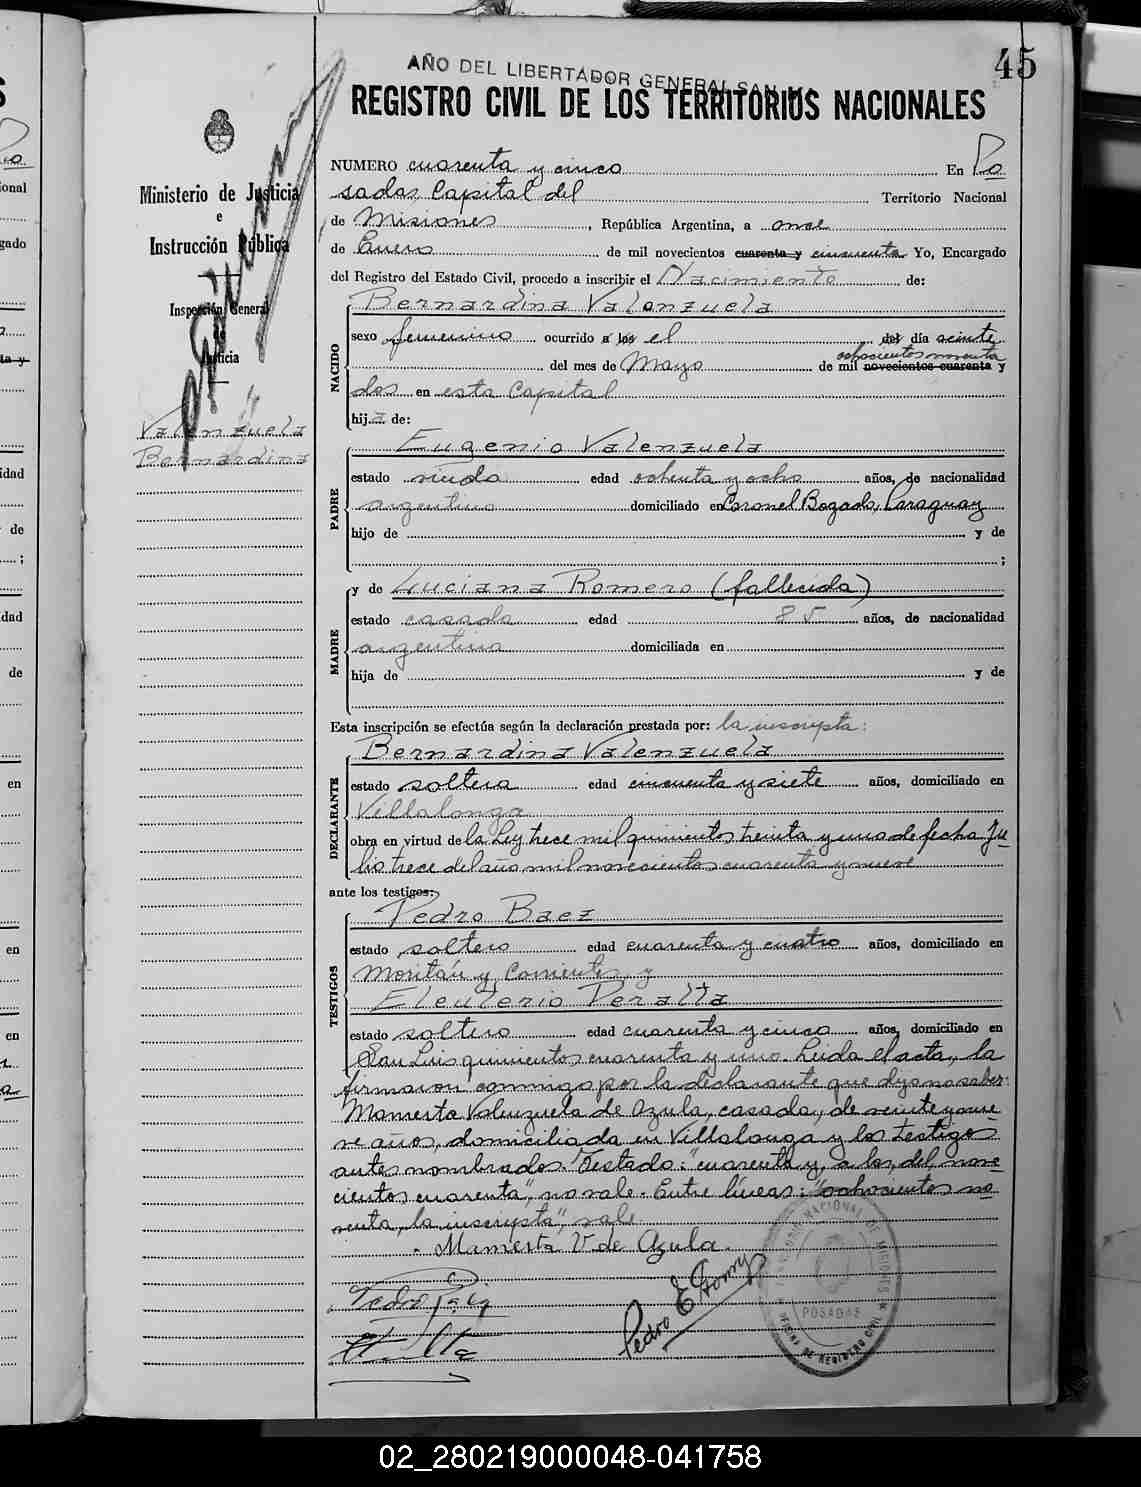 45
AÑO DEL LIBERTADOR GENERAL SAN M
REGISTRO CIVIL DE LOS TERRITORIOS NACIONALES
Ministerio de Justicia
e
Instrucción Pública
Inspección General
de
Justicia
Valenzuela
Bernardina
NUMERO cuarenta y cinco En Po
sadas Capital del Territorio Nacional
de Misiones, República Argentina, a once
de Enero de mil novecientos cuarenta y cincuenta Yo, Encargado
del Registro del Estado Civil, procedo a inscribir el Nacimiento de:
NACIDO
Bernardina Valenzuela
sexo femenino ocurrido a las el del día veinte
ochocientos noventa
del mes de Mayo de mil novecientos cuarenta y
dos en esta Capital
hija de:
PADRE
Eugenio Valenzuela
estado viudo edad ochenta y ocho años, de nacionalidad
argentino domiciliado en Coronel Bogado, Paraguay
hijo de y de
;
MADRE
y de Luciana Romero (fallecida)
estado casada edad 85 años, de nacionalidad
argentina domiciliada en
hija de y de
Esta inscripción se efectúa según la declaración prestada por: la inscripta:
DECLARANTE
Bernardina Valenzuela
estado soltera edad cincuenta y siete años, domiciliado en
Villalonga
obra en virtud de la Ley trece mil quinientos treinta y uno de fecha Ju
lio trece del año mil novecientos cuarenta y nueve
ante los testigos:
TESTIGOS
Pedro Baez
estado soltero edad cuarenta y cuatro años, domiciliado en
y Corrientes y
Eleuterio Peralta
estado soltero edad cuarenta y cinco años, domiciliado en
San Luis quinientos cuarenta y uno. Leida el acta, la
firmaron conmigo por la declarante que dijo no saber:
Mamerta Valenzuela de Azula, casada, de veinte y nue
ve años, domiciliada en Villalonga y los testigos
antes nombrados. Testado: "cuarenta y, a las, del, nove
cientos cuarenta", no vale. Entre líneas: "ochocientos no
venta, la inscripta", vale.
Mamerta V. de Azula.
Pedro Baez
Pedro E
NACIONAL DE MISIONES
POSADAS
OFICINA DE REGISTRO CIVIL
02_280219000048-041758